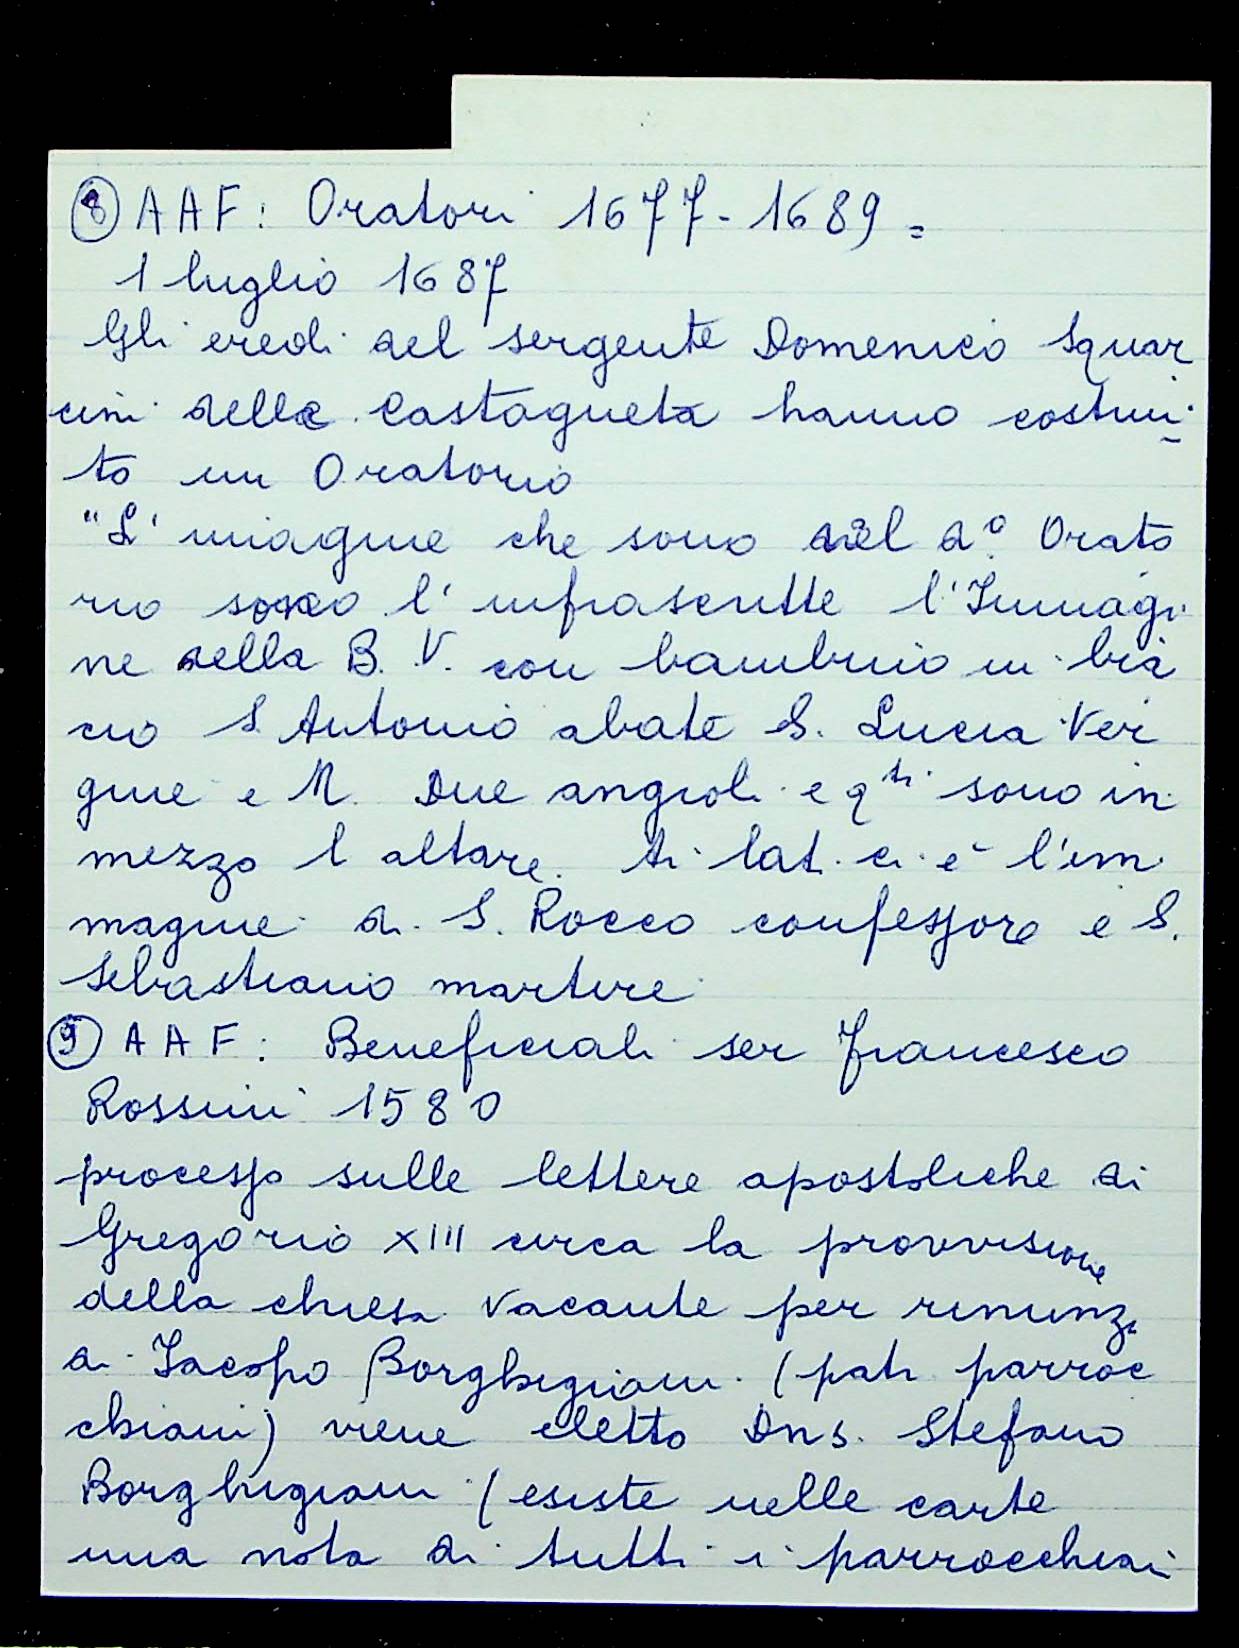 8 AAF: Oratori 1677-1689=
1 luglio 1687
Gli eredi del sergente Domenico Squar
cini della Castagneta hanno costrui
to un Oratorio
"L'miagine che sono nel d.º Orato
rio sono l'infrascritte l'Immagi
ne della B. V. con bambino in bra
cio S. Antonio abate S. Lucia Ver
gine e M. Due angioli e q.ti sono in
mezzo l altare. ti lat. ci è l'im
magine di S. Rocco confessore e S.
Sebastiano martire
9 AAF: Beneficiali ser Francesco
Rossini 1580
processo sulle lettere apostoliche di
Gregorio XIII circa la provvisione
della chiesa vacante per rinunz.
di Jacopo Borghigiani (patr. parroc
chiani) viene eletto Dns. Stefano
Borghigiani (esiste nelle carte
una nota di tutti i parrocchiani